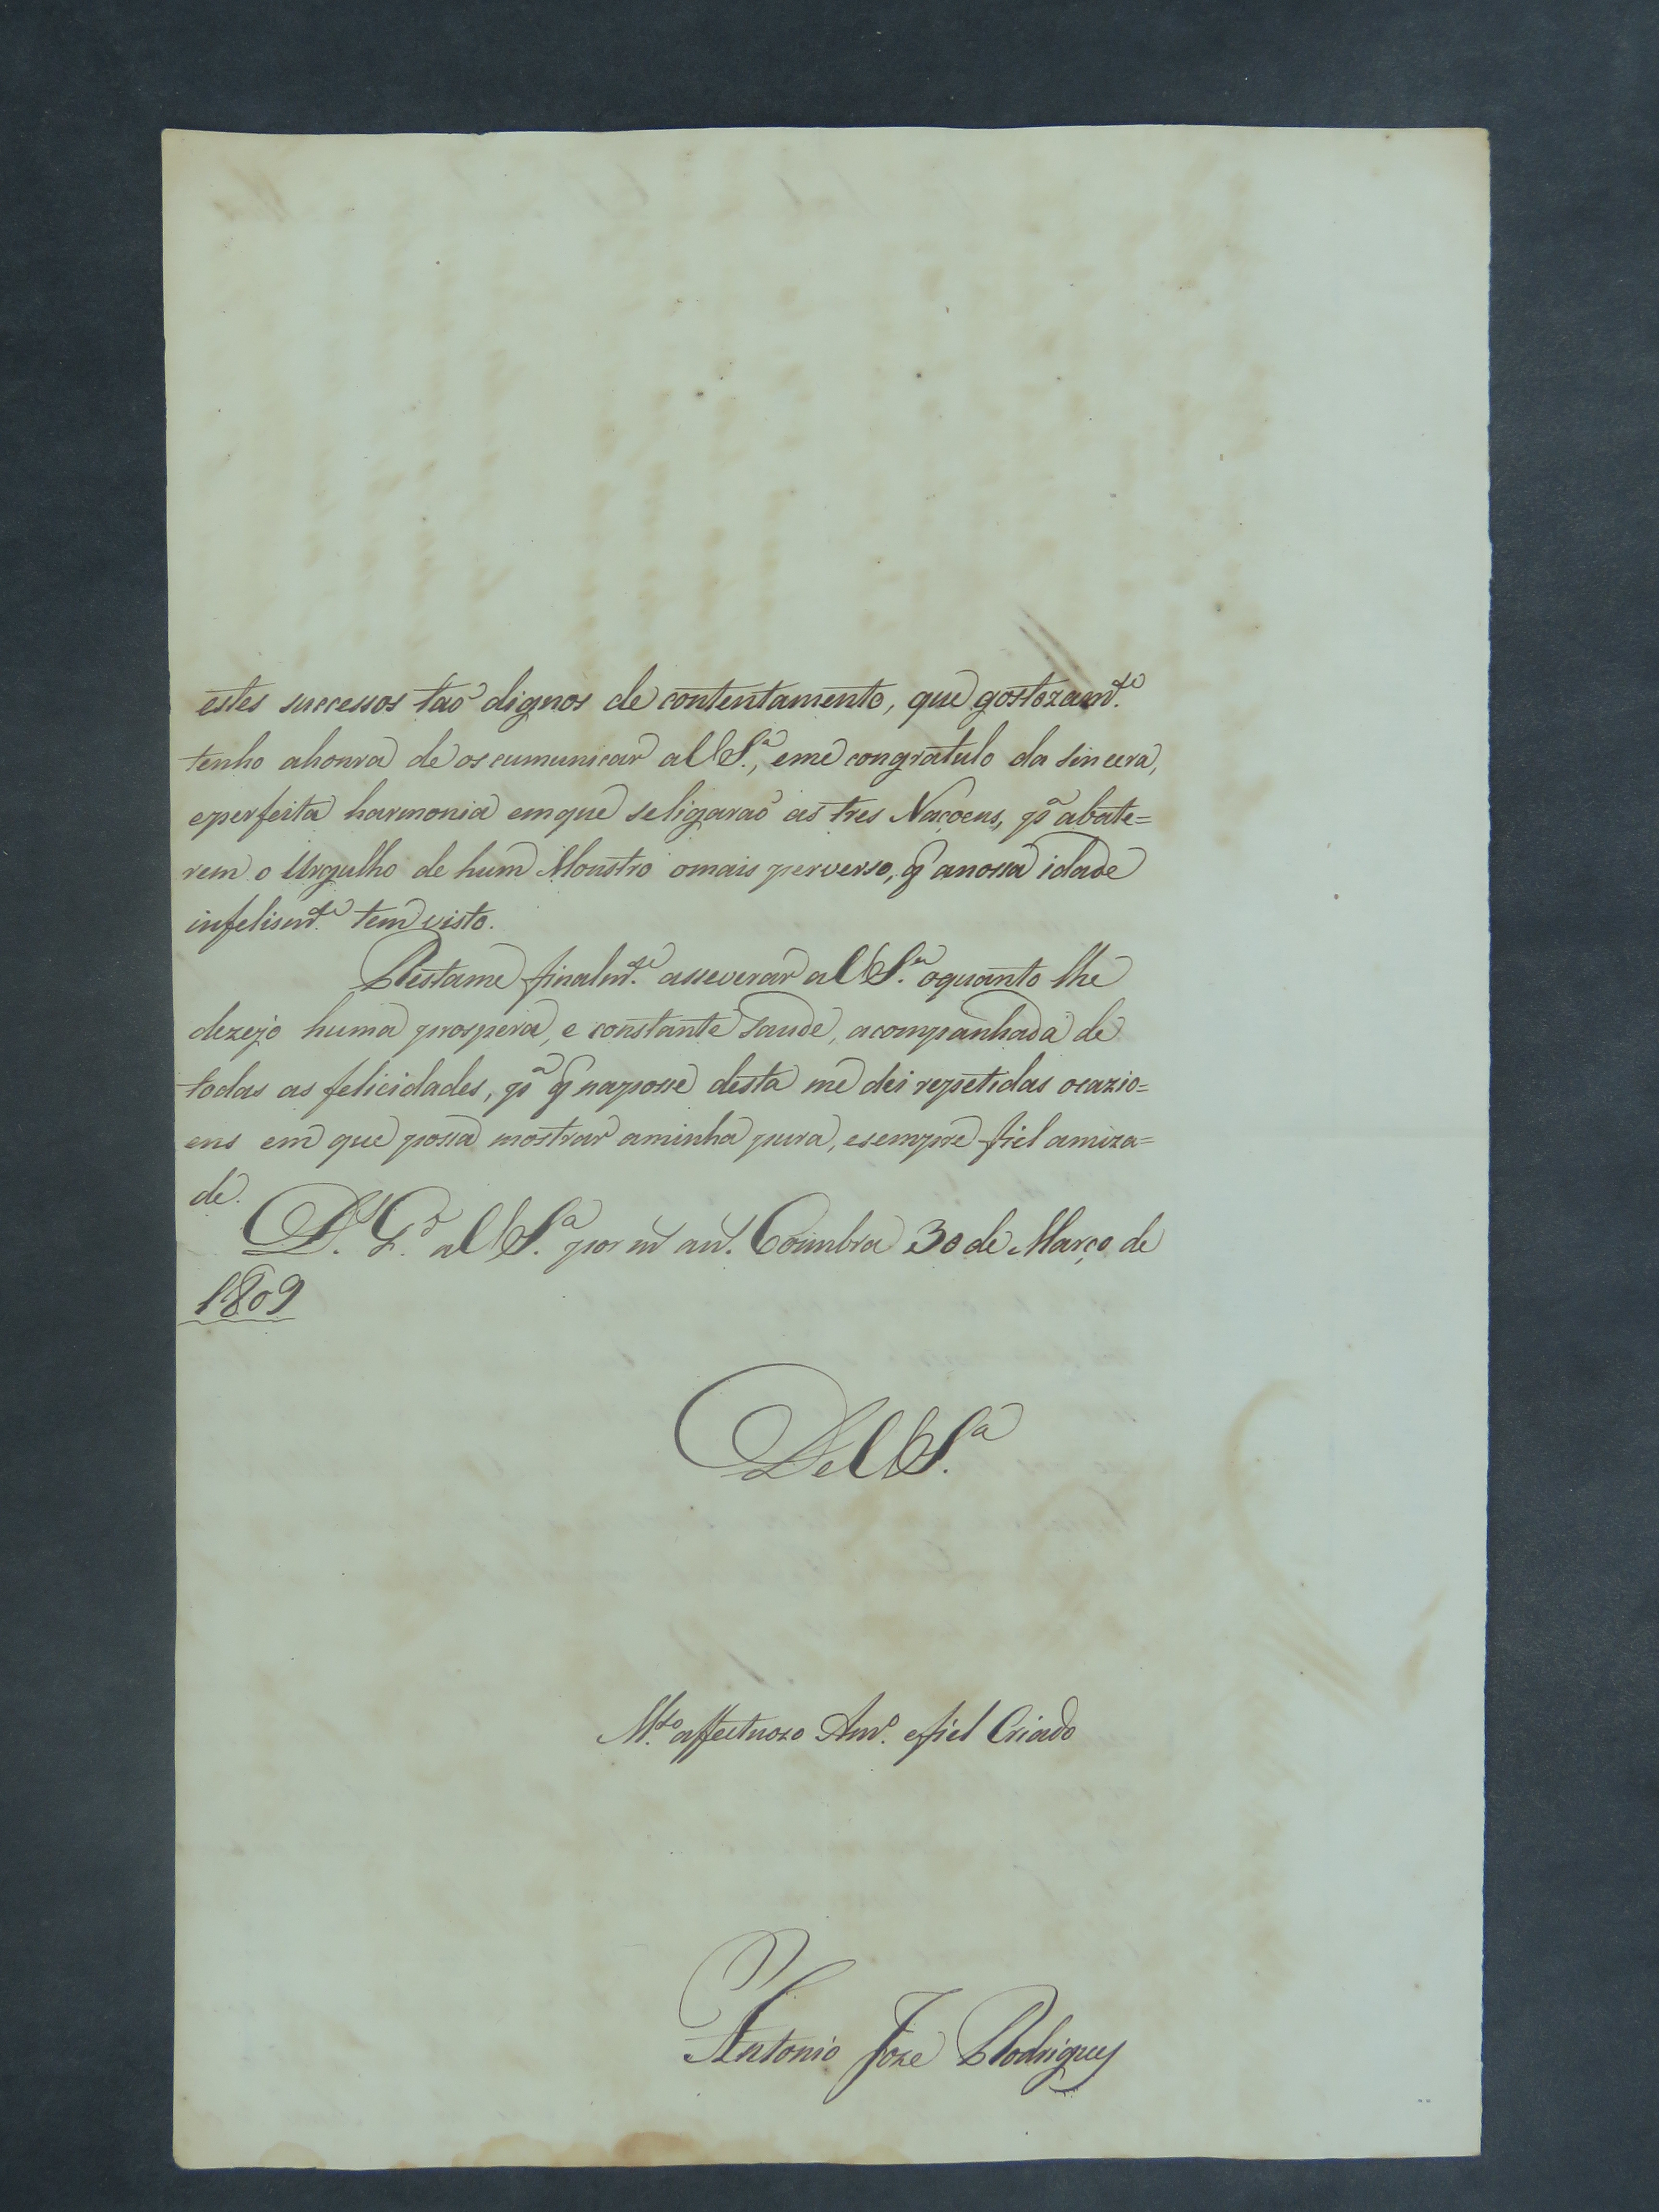 estes successos taõ dignos de contentamento, que gostozamte.
tenho ahonra de os cumunicar a V S.ª, eme congratulo da sincera,
eperfeita harmonia emque seligaraõ as tres Naçoens, pª abate=
rem o Urgulho de hum Monstro omais perverso, q̃ anossa idade
infelismte. tem visto.
Restame finalmte. asseverar a V S.ª oquanto lhe
dezejo huma prospera, e constante saude, acompanhada de
todas as felicidades, pª q̃ naposse desta me dei repetidas ocazio=
ens em que possa mostrar aminha pura, esempre fiel amiza=
de.
D.s G.e a V S.ª por ms. an.s Coimbra 30 de Março de
1809
De V S.ª
M.to affectuozo Am.o efiel Criado
Antonio Joze Rodrigues